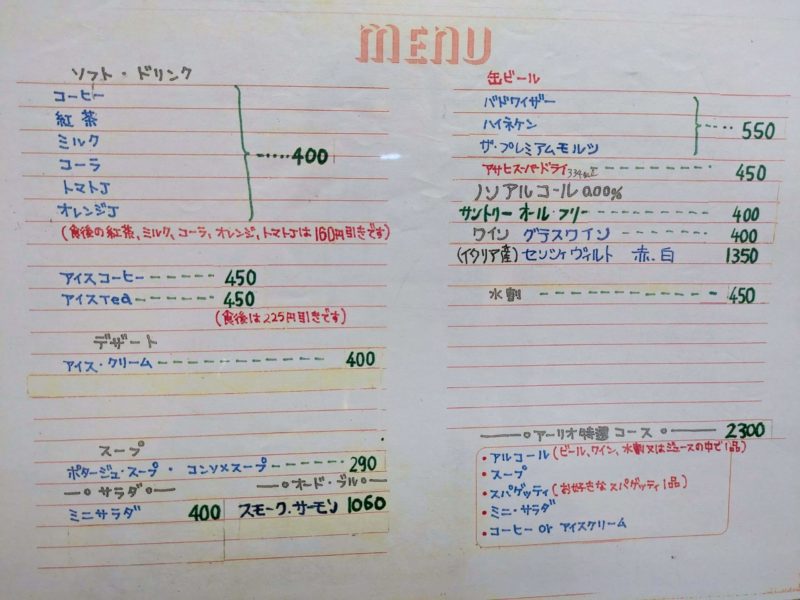 MENU
ソフト・ドリンク
コーヒー
紅茶
ミルク
コーラ
トマトJ
オレンジJ
400
(食後の紅茶、ミルク、コーラ、オレンジ、トマトJは160円引きです)
アイスコーヒー 450
アイスTea 450
(食後は225円引きです)
デザート
アイス・クリーム 400
スープ
ポタージュ・スープ・コンソメスープ 290
サラダ
ミニサラダ 400
オード・ブル
スモーク・サーモン 1060
缶ビール
バドワイザー
ハイネケン
ザ・プレミアムモルツ
550
アサヒスーパードライ 334ml 450
ノンアルコール 0.00%
サントリー オール・フリー 400
ワイン グラスワイン 400
(イタリア産) センシィ ヴィルト 赤、白 1350
水割 450
アーリオ特選コース 2300
・アルコール(ビール、ワイン、水割又はジュースの中で1品)
・スープ
・スパゲッティ(お好きなスパゲッティ1品)
・ミニ・サラダ
・コーヒー or アイスクリーム